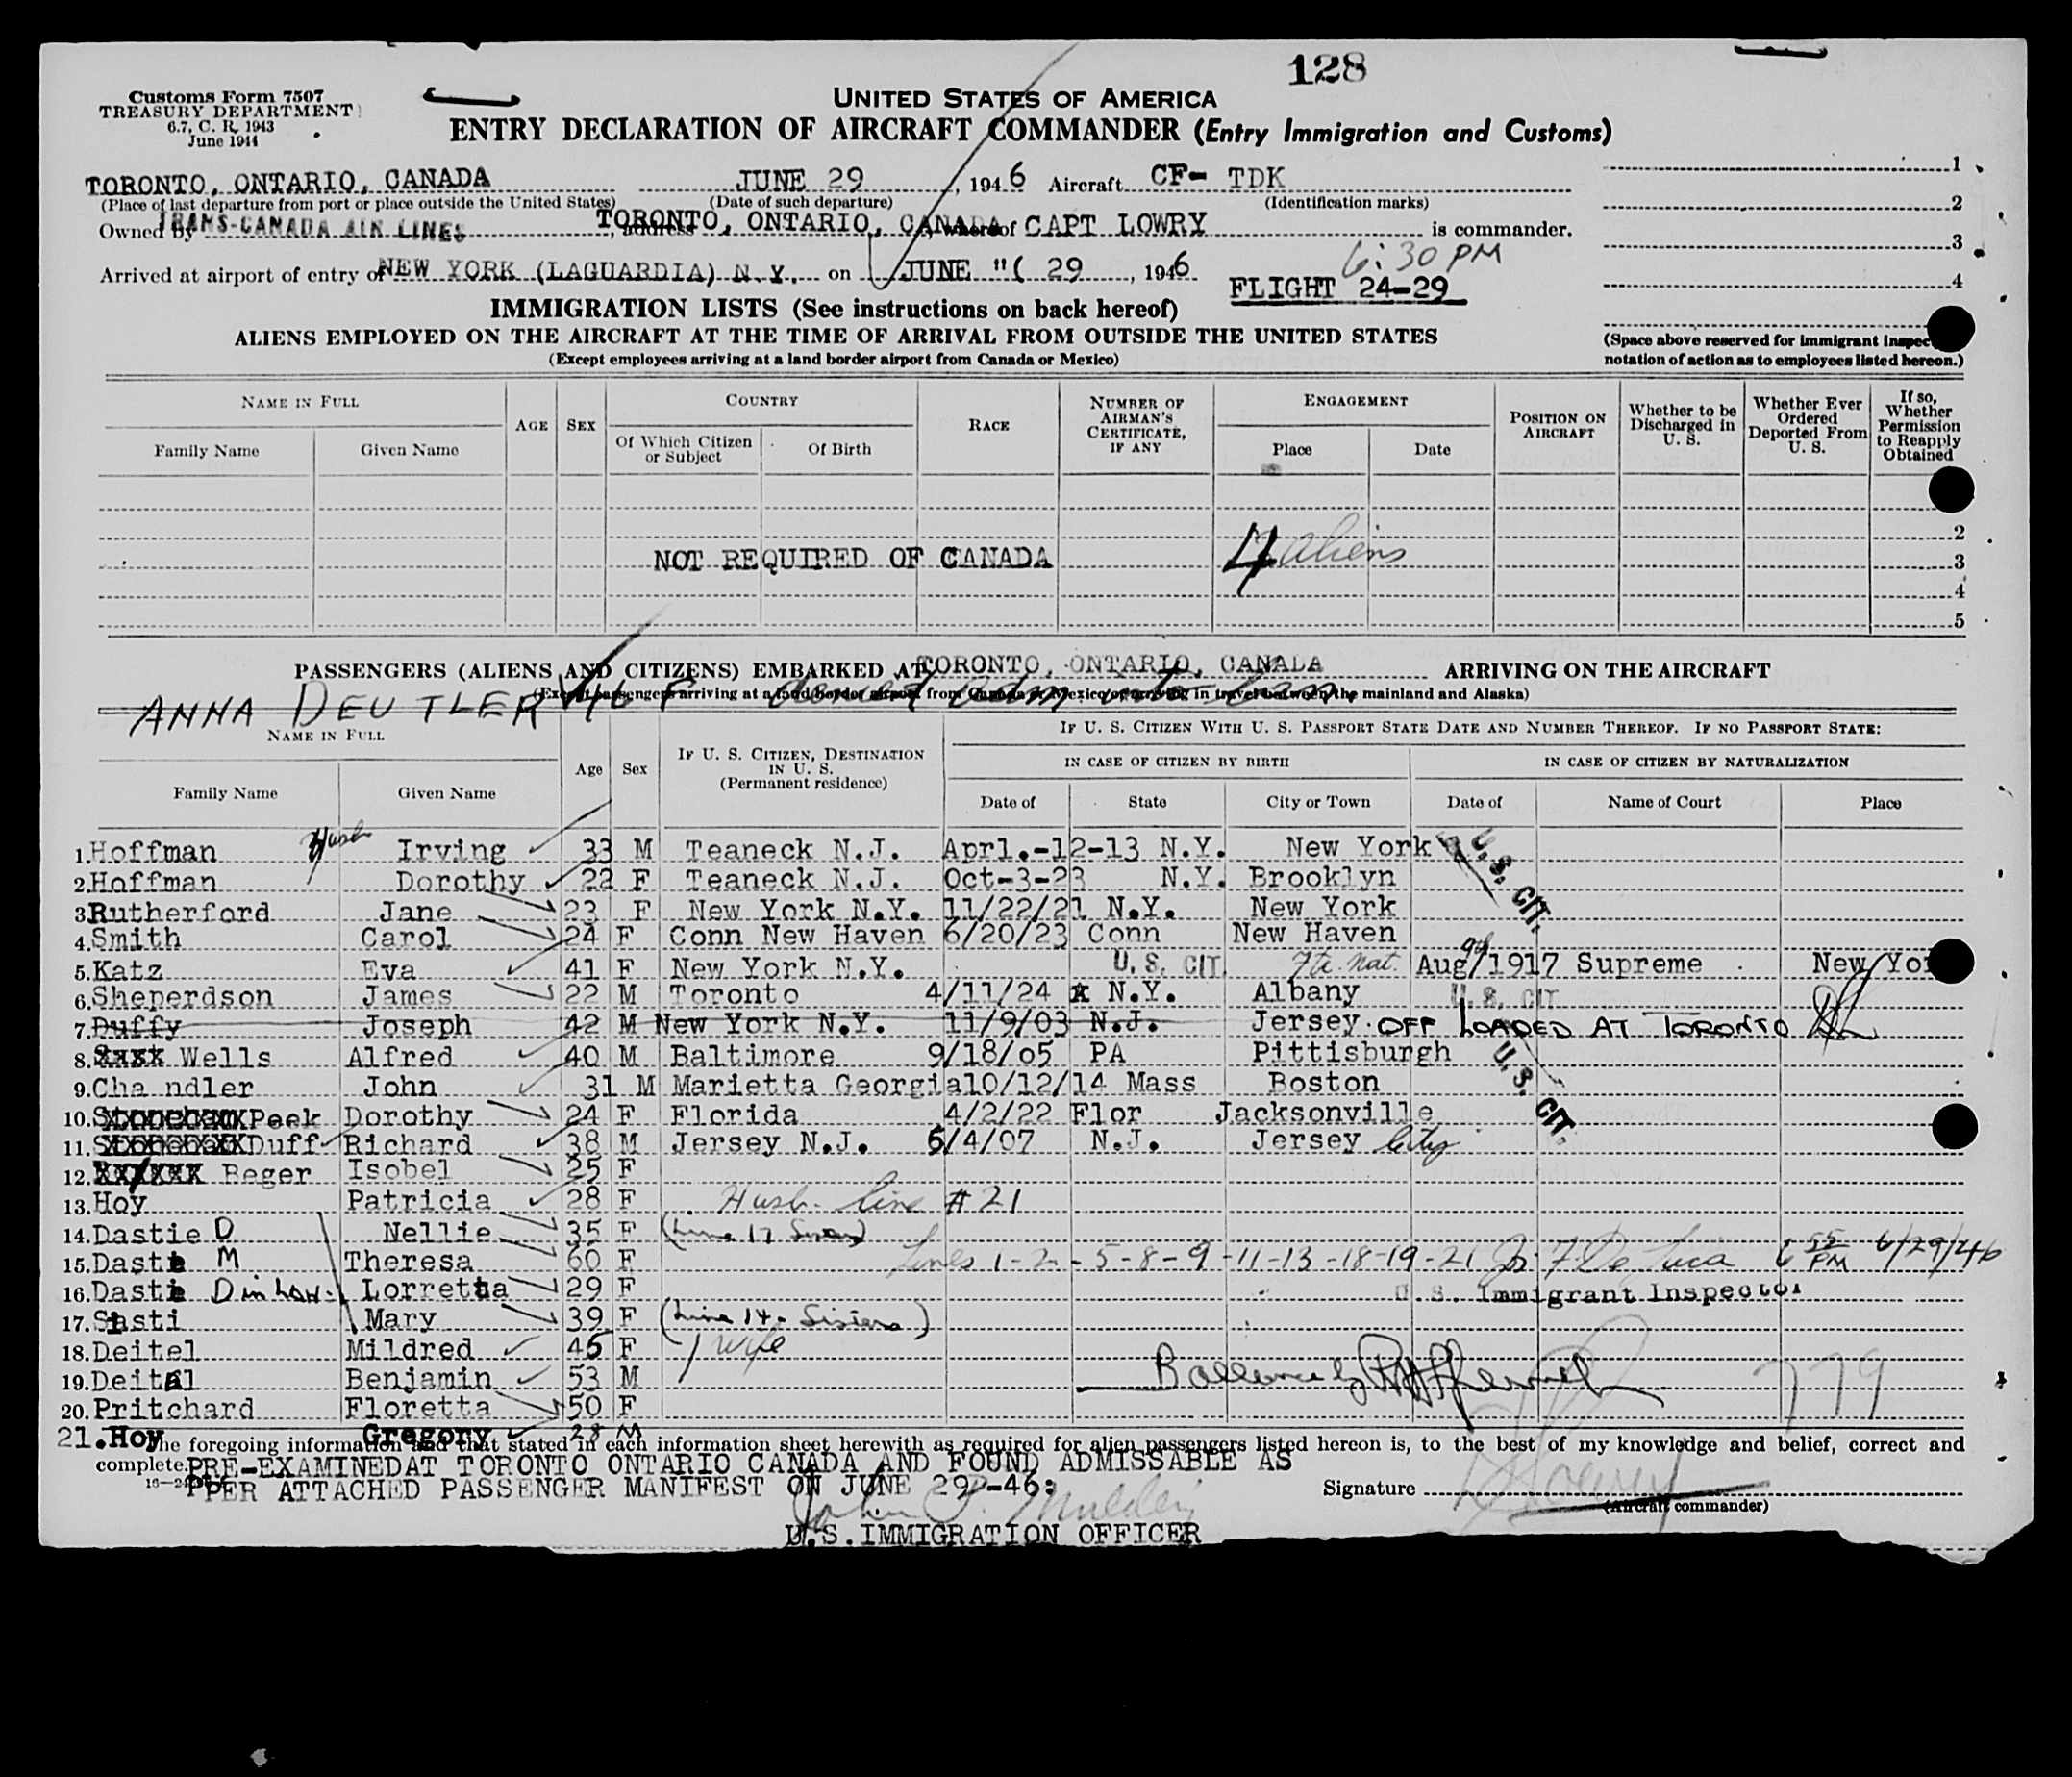 128
Customs Form 7507
TREASURY DEPARTMENT
6.7, C. R. 1943
June 1944
UNITED STATES OF AMERICA
ENTRY DECLARATION OF AIRCRAFT COMMANDER (Entry Immigration and Customs)
TORONTO, ONTARIO, CANADA JUNE 29, 1946 Aircraft CF- TDK
(Place of last departure from port or place outside the United States) (Date of such departure) (Identification marks)
Owned by TRANS-CANADA AIR LINES, address TORONTO, ONTARIO, CANADA whereof CAPT LOWRY is commander.
Arrived at airport of entry of NEW YORK (LAGUARDIA) N.Y. on JUNE "( 29, 1946
6:30 PM
FLIGHT 24-29
1
2
3
4
(Space above reserved for immigrant inspec
notation of action as to employees listed hereon.)
IMMIGRATION LISTS (See instructions on back hereof)
ALIENS EMPLOYED ON THE AIRCRAFT AT THE TIME OF ARRIVAL FROM OUTSIDE THE UNITED STATES
(Except employees arriving at a land border airport from Canada or Mexico)
NAME IN FULL AGE SEX COUNTRY RACE NUMBER OF AIRMAN'S CERTIFICATE, IF ANY ENGAGEMENT POSITION ON AIRCRAFT Whether to be Discharged in U. S. Whether Ever Ordered Deported From U. S. If so, Whether Permission to Reapply Obtained
Family Name Given Name Of Which Citizen or Subject Of Birth Place Date
2
NOT REQUIRED OF CANADA 4 aliens 3
4
5
PASSENGERS (ALIENS AND CITIZENS) EMBARKED AT TORONTO, ONTARIO, CANADA ARRIVING ON THE AIRCRAFT
(Except passengers arriving at a land border airport from Canada or Mexico or arriving in travel between the mainland and Alaska)
ANNA DEUTLER
NAME IN FULL Age Sex IF U. S. CITIZEN, DESTINATION IN U. S. (Permanent residence) IF U. S. CITIZEN WITH U. S. PASSPORT STATE DATE AND NUMBER THEREOF. IF NO PASSPORT STATE:
IN CASE OF CITIZEN BY BIRTH IN CASE OF CITIZEN BY NATURALIZATION
Family Name Given Name Date of State City or Town Date of Name of Court Place
1. Hoffman Husb Irving 33 M Teaneck N.J. Aprl.-12-13 N.Y. New York
2. Hoffman Dorothy 22 F Teaneck N.J. Oct-3-23 N.Y. Brooklyn
U.S. CIT.
3. Rutherford Jane 23 F New York N.Y. 11/22/21 N.Y. New York
4. Smith Carol 24 F Conn New Haven 6/20/23 Conn New Haven
5. Katz Eva 41 F New York N.Y. U.S. CIT. Nat. Aug/1917 Supreme New Yor
6. Sheperdson James 22 M Toronto 4/11/24 N.Y. Albany U.S. CIT
7. Duffy Joseph 42 M New York N.Y. 11/9/03 N.J. Jersey. OFF LOADED AT TORONTO
8. Wells Alfred 40 M Baltimore 9/18/05 PA Pittisburgh
U.S. CIT.
9. Cha ndler John 31 M Marietta Georgia 10/12/14 Mass Boston
10. Peek Dorothy 24 F Florida 4/2/22 Flor Jacksonville
11. Duff Richard 38 M Jersey N.J. 6/4/07 N.J. Jersey City
12. Beger Isobel 25 F
13. Hoy Patricia 28 F Husb. line #21
14. Dastie D Nellie 35 F (Line 17 Sister)
15. Dasti M Theresa 60 F Lines 1-2-5-8-9-11-13-18-19-21 F De Luca 6 55 PM 6/29/46
16. Dasti D in Law. Lorretta 29 F U.S. Immigrant Inspector
17. Sasti Mary 39 F (Line 14. Sisters)
18. Deitel Mildred 45 F wife
19. Deitel Benjamin 53 M Balance by 779
20. Pritchard Floretta 50 F
21. Hoy Gregory 28 M
The foregoing information and that stated in each information sheet herewith as required for alien passengers listed hereon is, to the best of my knowledge and belief, correct and
complete. PRE-EXAMINED AT TORONTO ONTARIO CANADA AND FOUND ADMISSABLE AS
PPER ATTACHED PASSENGER MANIFEST ON JUNE 29-46:
Signature
(Aircraft commander)
U.S.IMMIGRATION OFFICER